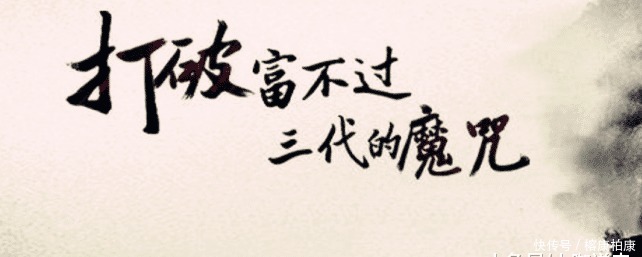 打破富不过
三代的魔咒
快传号 / 榕康柏康